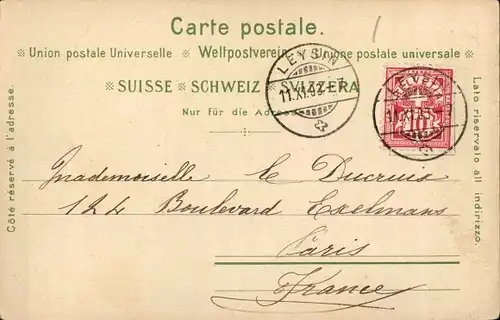 Carte postale.
Union postale Universelle Weltpostverein Unione postale universale
SUISSE SCHWEIZ SVIZZERA
Nur für die Adresse
Côté réservé à l'adresse.
Lato riservato all indirizzo.
LEYSIN
11.XI.03
HELVETIA
10
LEYSIN
11.XI.03
Mademoiselle
124 Boulevard Exelmans
Paris
France